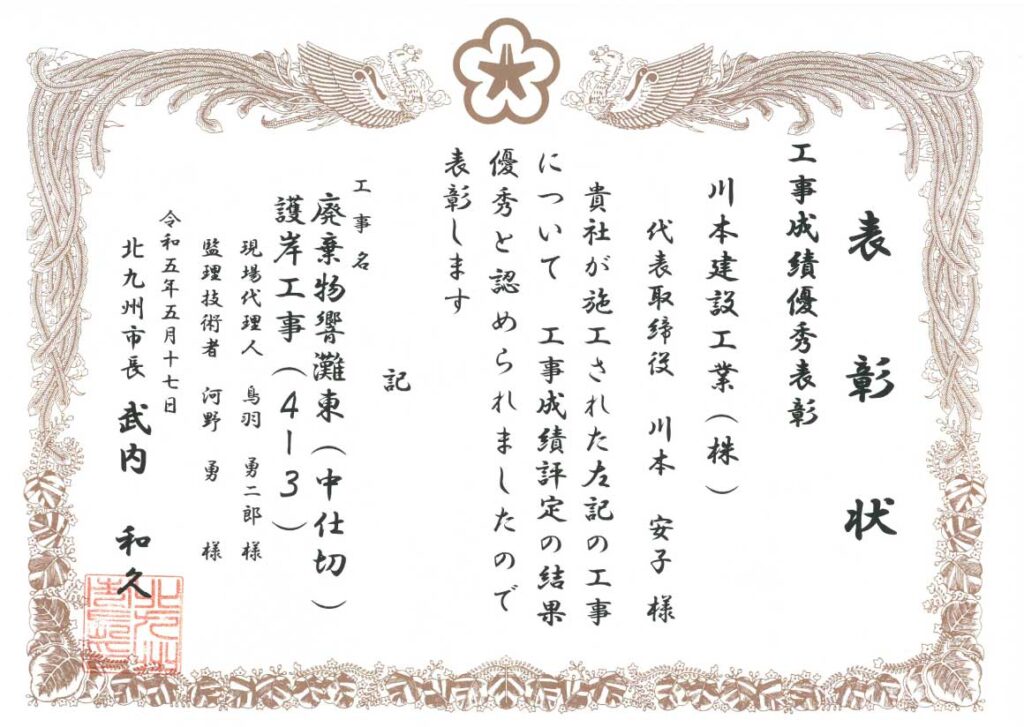 表彰状
工事成績優秀表彰
川本建設工業（株）
代表取締役 川本 安子 様
貴社が施工された左記の工事
について 工事成績評定の結果
優秀と認められましたので
表彰します
記
工事名
廃棄物響灘東（中仕切）
護岸工事（4－3）
現場代理人 鳥羽 勇二郎 様
監理技術者 河野 勇 様
令和五年五月十七日
北九州市長 武内 和久